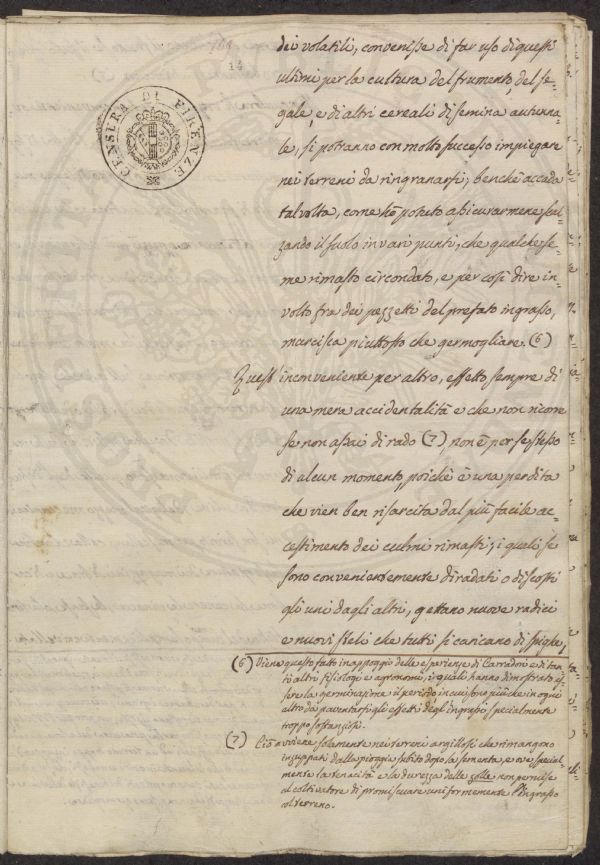 14
CENSURA DI FIRENZE
dei volatili, convenisse di far uso di questi
ultimi per la cultura del frumento, del se=
gale, e di altri cereali di semina autunna=
le, si potranno con molto successo impiegare
nei terreni da ringranarsi; benchè accada
talvolta, come hò potuto assicurarmene scal=
zando il suolo in vari punti, che qualche se=
me rimasto circondato, e per così dire in=
volto fra dei pezzetti del prefato ingrasso,
marcisca piuttosto che germogliare. (6)
Quest' inconveniente per altro, effetto sempre di
una mera accidentalità e che non ricorre
se non assai di rado (7), non è per se stesso
di alcun momento, poichè è una perdita
che vien ben risarcita dal più facile ac=
cestimento dei culmi rimasti; i quali se
sono convenientemente diradati o discosti
gli uni dagli altri, gettano nuove radici
e nuovi steli che tutti si caricano di spighe,
(6) Viene questo fatto in appoggio delle esperienze di Carradori e di tan=
ti altri fisiologi e agronomi, i quali hanno dimostrato es=
sere la germinazione il periodo in cui sono più che in ogni
altro da paventarsi gli effetti degl'ingrassi specialmente
troppo sostanziosi.
(7) Ciò avviene solamente nei terreni argillosi che rimangono
inzuppati dalla pioggia subito dopo la sementa, e ove special=
mente la tenacità e la durezza delle zolle non permise
al coltivatore di promiscuare uniformemente l'ingrasso
col terreno.